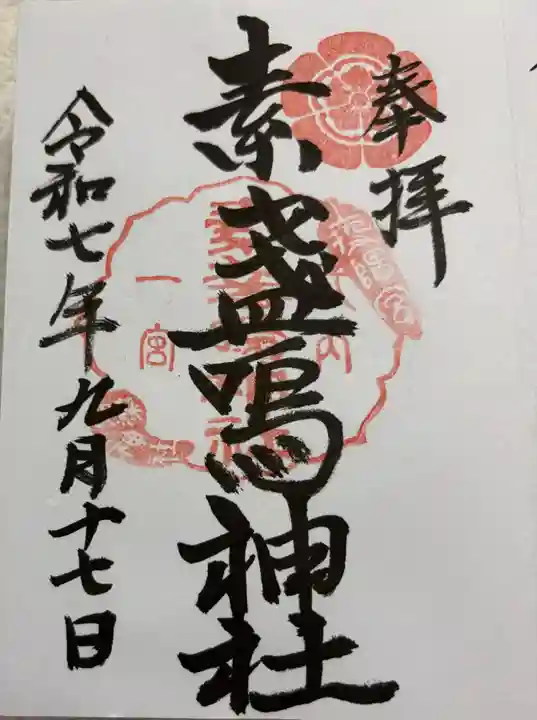 奉拝
素盞嗚神社
内
一宮
令和七年九月十七日